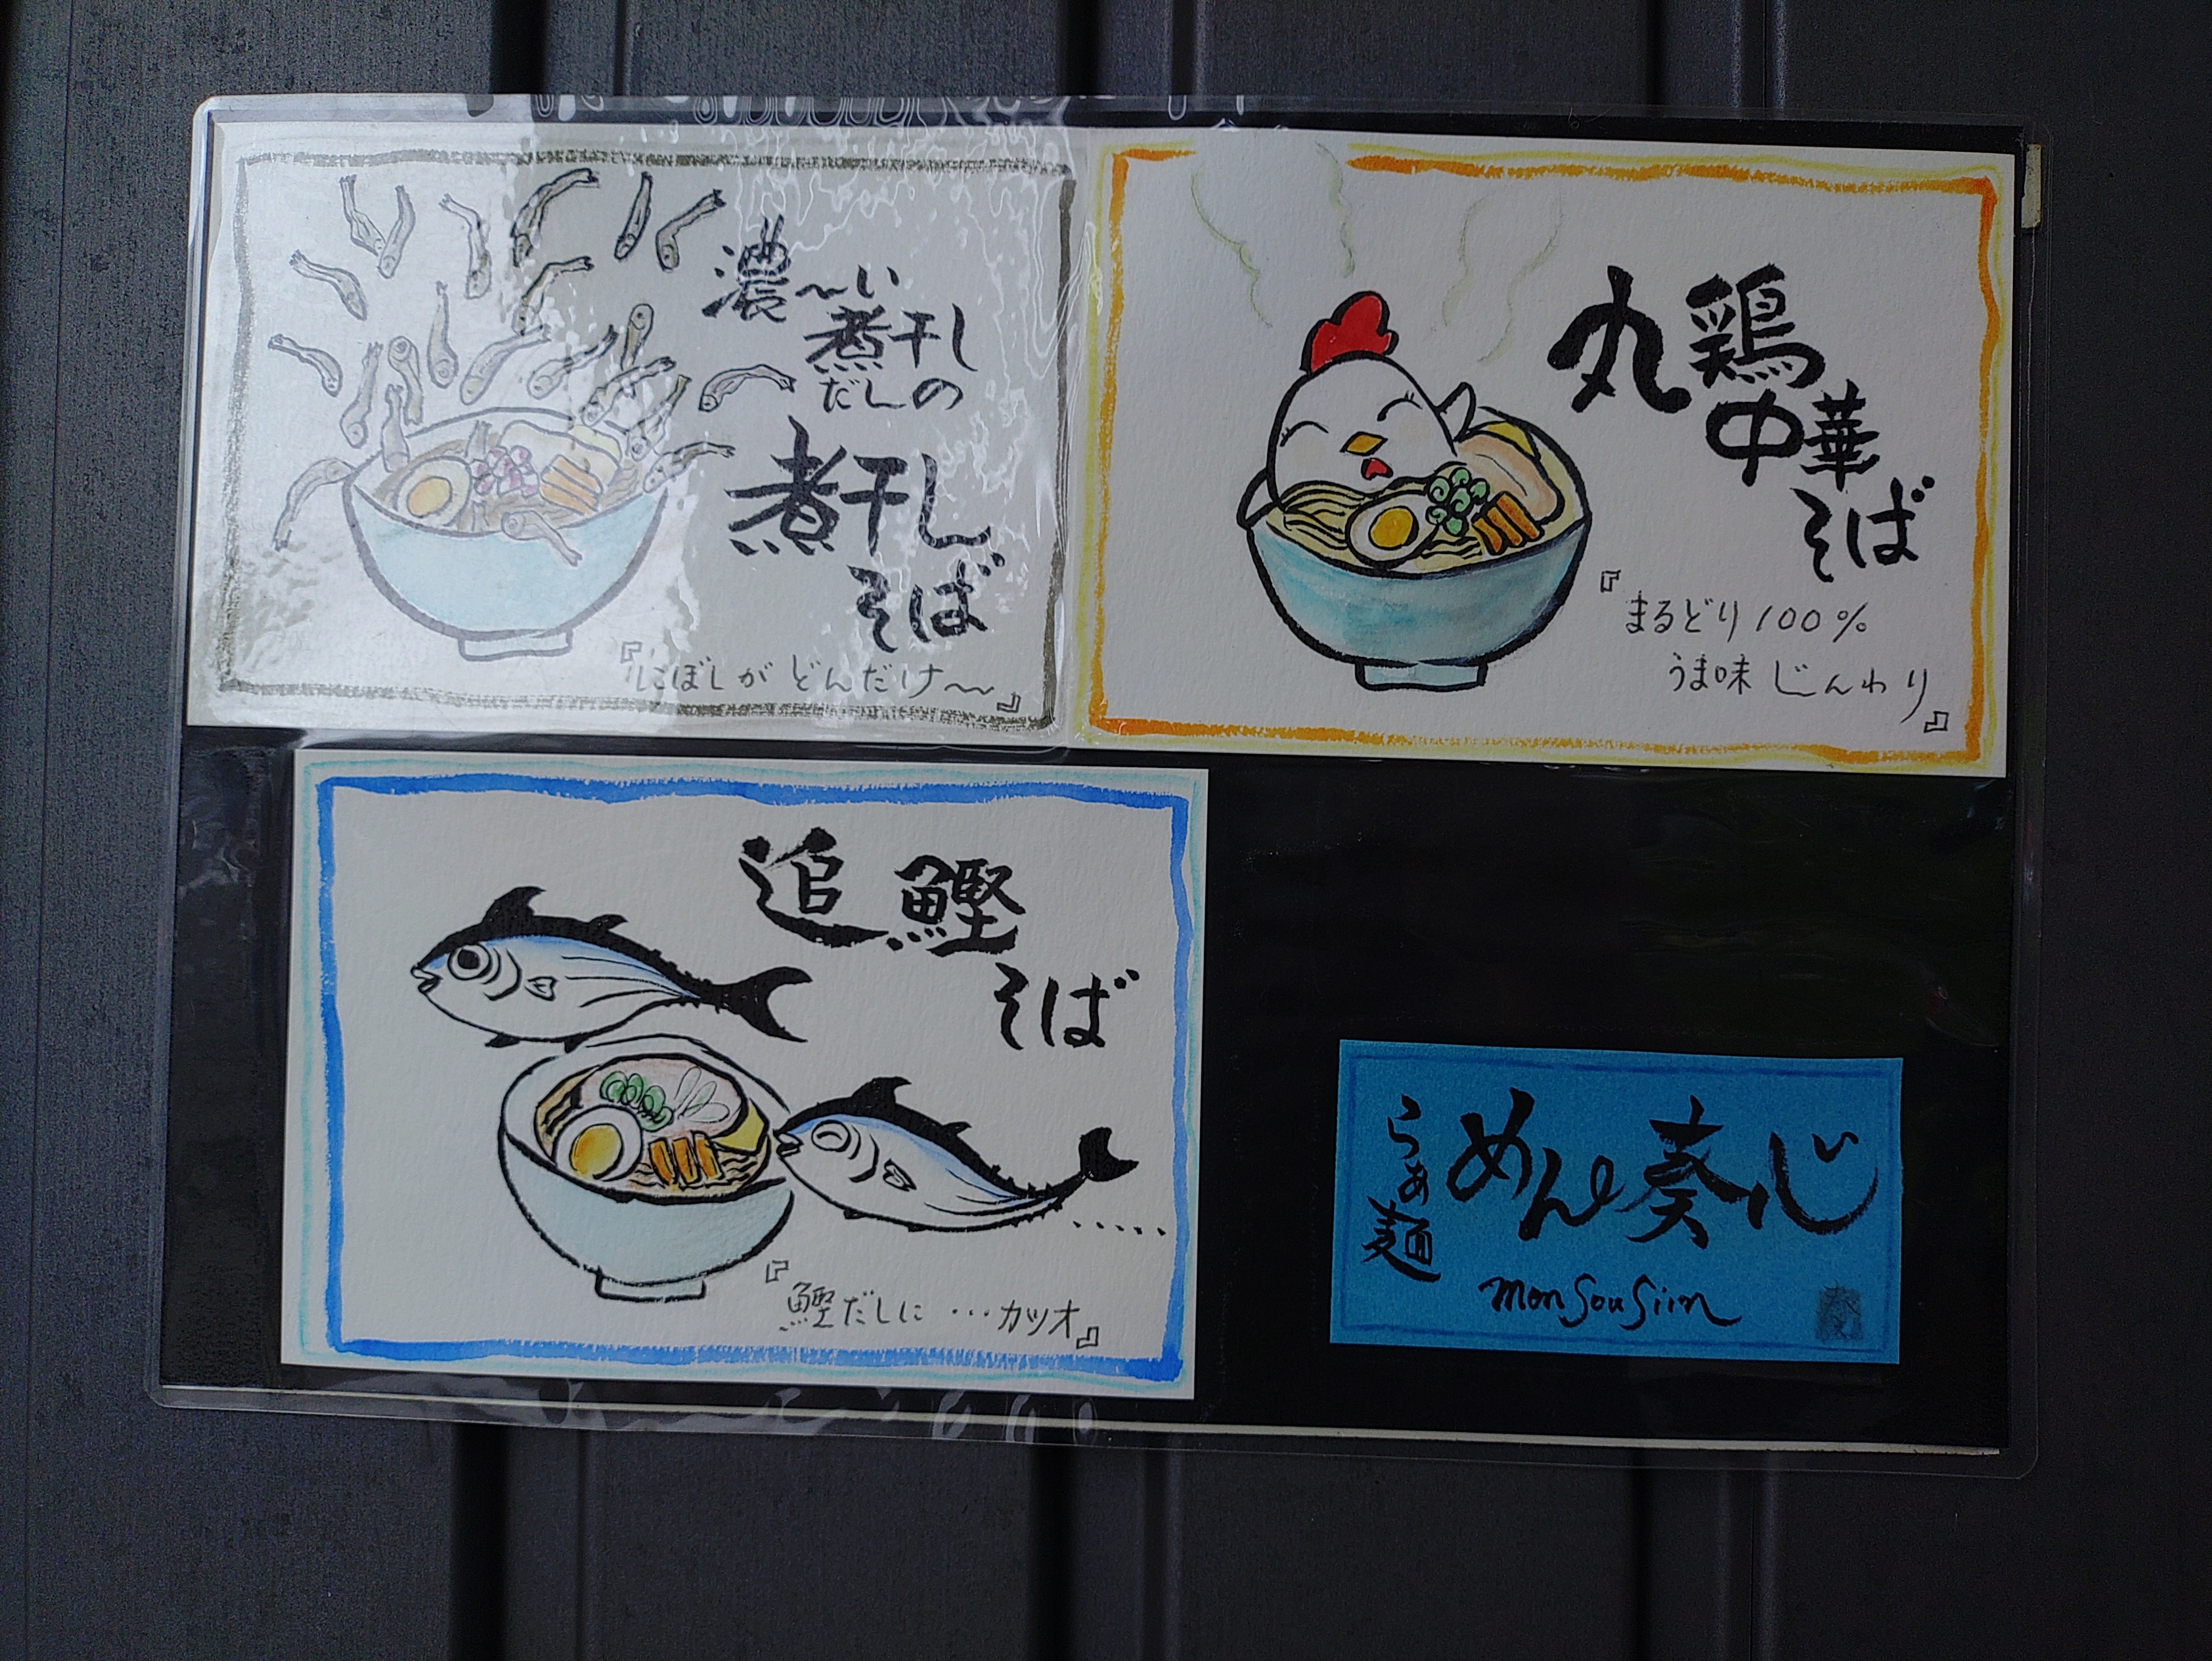 濃〜い
煮干し
だしの
煮干し
そば
『にぼしが どんだけ〜』
丸鶏
中華
そば
『まるどり100%
うま味 じんわり』
追鰹
そば
『鰹だしに…カツオ』
らぁ麺
めん奏心
MenSouSiin